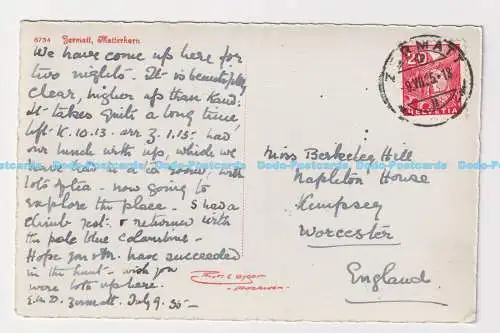 6754 Zermatt, Matterhorn
We have come up here for
two nights. It is beautifully
clear, higher up than Kand:
It takes quite a long time
left K. 10.13. arr Z. 1.15: had
our lunch with us, which we
have had in a tea room, with
lots of tea - now going to
explore the place. S had a
climb yest: & returned with
the pale blue columbine.
Hope you & Mr. have succeeded
in the hunt - wish you
were lots up here.
E.M.D. Zermatt. July 9. 35 -
Miss Berkeley Hill
Napleton House
Kempsey
Worcester
England
ZERMATT
9.VII.35-18
20
HELVETIA
Dodo-Postcards Dodo-Postcards Dodo-Postcards